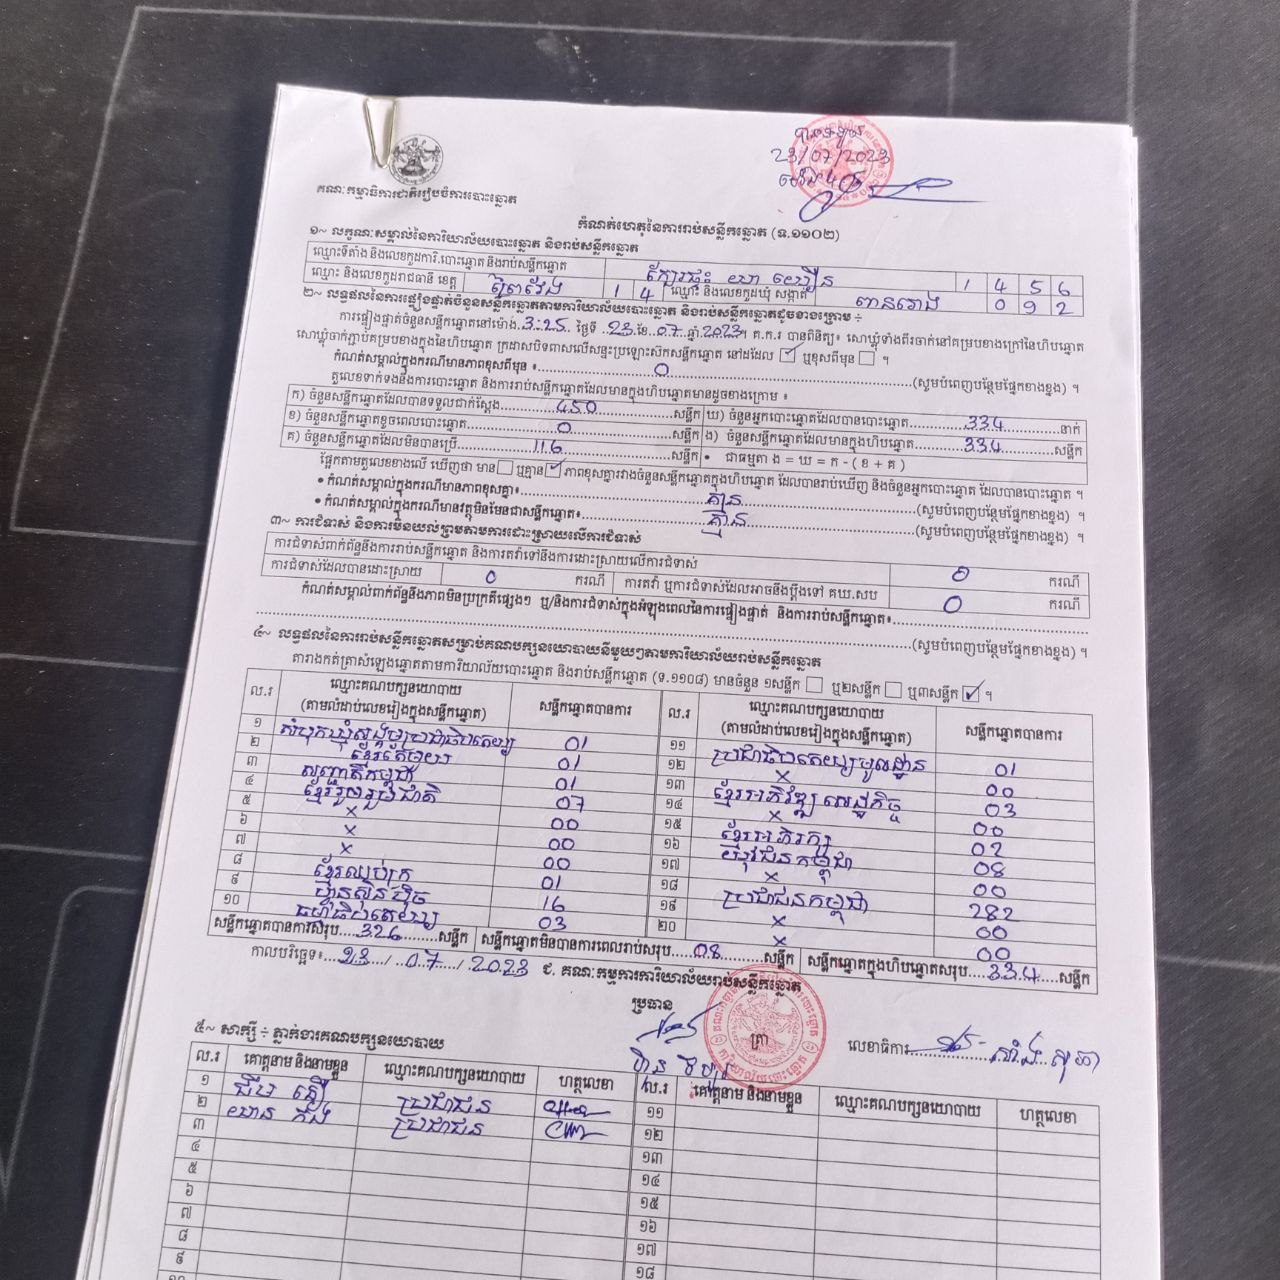 23/07/2023
គណៈកម្មាធិការជាតិរៀបចំការបោះឆ្នោត
កំណត់ហេតុនៃការរាប់សន្លឹកឆ្នោត (ទ.១១០២)
១~ លក្ខណៈសម្គាល់នៃការិយាល័យបោះឆ្នោត និងរាប់សន្លឹកឆ្នោត
ឈ្មោះទីតាំង និងលេខកូដការិ.បោះឆ្នោត និងរាប់សន្លឹកឆ្នោត 1 4 5 6
ឈ្មោះ និងលេខកូដរាជធានី ខេត្ត ព្រៃវែង 1 4 ឈ្មោះ និងលេខកូដឃុំ សង្កាត់ ពានរោង 0 9 2
២~ លទ្ធផលនៃការផ្ទៀងផ្ទាត់ចំនួនសន្លឹកឆ្នោតតាមការិយាល័យបោះឆ្នោត និងរាប់សន្លឹកឆ្នោតដូចខាងក្រោម ÷
ការផ្ទៀងផ្ទាត់ចំនួនសន្លឹកឆ្នោតនៅម៉ោង 3:25 ថ្ងៃទី 23 ខែ 07 ឆ្នាំ 2023។ គ.ក.រ បានពិនិត្យ៖ សោឃ្លុំទាំងពីរចាក់នៅគម្របខាងក្រៅនៃហិបឆ្នោត
សោឃ្លុំចាក់ភ្ជាប់គម្របខាងក្នុងនៃហិបឆ្នោត ក្រដាសបិទពាសលើសន្ទះប្រឡោះស៊កសន្លឹកឆ្នោត នៅដដែល ✓ ឬខុសពីមុន ។
កំណត់សម្គាល់ក្នុងករណីមានភាពខុសពីមុន ៖ 0 (សូមបំពេញបន្ថែមផ្នែកខាងខ្នង) ។
តួលេខទាក់ទងនឹងការបោះឆ្នោត និងការរាប់សន្លឹកឆ្នោតដែលមានក្នុងហិបឆ្នោតមានដូចខាងក្រោម ៖
ក) ចំនួនសន្លឹកឆ្នោតដែលបានទទួលជាក់ស្តែង 450 សន្លឹក ឃ) ចំនួនអ្នកបោះឆ្នោតដែលបានបោះឆ្នោត 334 នាក់
ខ) ចំនួនសន្លឹកឆ្នោតខូចពេលបោះឆ្នោត 0 សន្លឹក ង) ចំនួនសន្លឹកឆ្នោតដែលមានក្នុងហិបឆ្នោត 334 សន្លឹក
គ) ចំនួនសន្លឹកឆ្នោតដែលមិនបានប្រើ 116 សន្លឹក • ជាធម្មតា ង = ឃ = ក - ( ខ + គ )
ផ្អែកតាមតួលេខខាងលើ ឃើញថា មាន ឬគ្មាន ✓ ភាពខុសគ្នារវាងចំនួនសន្លឹកឆ្នោតក្នុងហិបឆ្នោត ដែលបានរាប់ឃើញ និងចំនួនអ្នកបោះឆ្នោត ដែលបានបោះឆ្នោត ។
• កំណត់សម្គាល់ក្នុងករណីមានភាពខុសគ្នា៖ គ្មាន (សូមបំពេញបន្ថែមផ្នែកខាងខ្នង) ។
• កំណត់សម្គាល់ក្នុងករណីមានវត្ថុមិនមែនជាសន្លឹកឆ្នោត៖ គ្មាន (សូមបំពេញបន្ថែមផ្នែកខាងខ្នង) ។
៣~ ការជំទាស់ និងការមិនយល់ព្រមតាមការដោះស្រាយលើការជំទាស់
ការជំទាស់ពាក់ព័ន្ធនឹងការរាប់សន្លឹកឆ្នោត និងការតវ៉ាទៅនឹងការដោះស្រាយលើការជំទាស់ 0 ករណី
ការជំទាស់ដែលបានដោះស្រាយ 0 ករណី ការតវ៉ា ឬការជំទាស់ដែលអាចនឹងប្តឹងទៅ គឃ.សប 0 ករណី
កំណត់សម្គាល់ពាក់ព័ន្ធនឹងភាពមិនប្រក្រតីផ្សេងៗ ឬ/និងការជំទាស់ក្នុងអំឡុងពេលនៃការផ្ទៀងផ្ទាត់ និងការរាប់សន្លឹកឆ្នោត៖
(សូមបំពេញបន្ថែមផ្នែកខាងខ្នង) ។
៤~ លទ្ធផលនៃការរាប់សន្លឹកឆ្នោតសម្រាប់គណបក្សនយោបាយនីមួយៗតាមការិយាល័យរាប់សន្លឹកឆ្នោត
តារាងកត់ត្រាសំឡេងឆ្នោតតាមការិយាល័យបោះឆ្នោត និងរាប់សន្លឹកឆ្នោត (ទ.១១០៨) មានចំនួន ១សន្លឹក ឬ២សន្លឹក ឬ៣សន្លឹក ✓ ។
ល.រ ឈ្មោះគណបក្សនយោបាយ (តាមលំដាប់លេខរៀងក្នុងសន្លឹកឆ្នោត) សន្លឹកឆ្នោតបានការ ល.រ ឈ្មោះគណបក្សនយោបាយ (តាមលំដាប់លេខរៀងក្នុងសន្លឹកឆ្នោត) សន្លឹកឆ្នោតបានការ
១ សំបុកឃ្មុំសង្គមប្រជាធិបតេយ្យ 01 ១១ ប្រជាធិបតេយ្យមូលដ្ឋាន 01
២ ខ្មែរតែមួយ 01 ១២ × 00
៣ សញ្ជាតិកម្ពុជា 01 ១៣ ខ្មែរអភិវឌ្ឍសេដ្ឋកិច្ច 03
៤ ខ្មែររួបរួមជាតិ 07 ១៤ × 00
៥ × 00 ១៥ ខ្មែរអភិរក្ស 02
៦ × 00 ១៦ យុវជនកម្ពុជា 08
៧ × 00 ១៧ × 00
៨ ខ្មែរឈប់ក្រ 01 ១៨ ប្រជាជនកម្ពុជា 282
៩ ហ្វ៊ុនស៊ិនប៉ិច 16 ១៩ × 00
១០ ធម្មាធិបតេយ្យ 03 ២០ × 00
សន្លឹកឆ្នោតបានការសរុប 326 សន្លឹក សន្លឹកឆ្នោតមិនបានការពេលរាប់សរុប 08 សន្លឹក សន្លឹកឆ្នោតក្នុងហិបឆ្នោតសរុប 334 សន្លឹក
កាលបរិច្ឆេទ៖ 23 / 07 / 2023 ជ. គណៈកម្មការការិយាល័យរាប់សន្លឹកឆ្នោត
ប្រធាន
ត្រា
លេខាធិការ
៥~ សាក្សី ÷ ភ្នាក់ងារគណបក្សនយោបាយ
ល.រ គោត្តនាម និងនាមខ្លួន ឈ្មោះគណបក្សនយោបាយ ហត្ថលេខា ល.រ គោត្តនាម និងនាមខ្លួន ឈ្មោះគណបក្សនយោបាយ ហត្ថលេខា
១ ប្រជាជន ១១
២ ប្រជាជន ១២
៣ ១៣
៤ ១៤
៥ ១៥
៦ ១៦
៧ ១៧
៨ ១៨
៩
១០